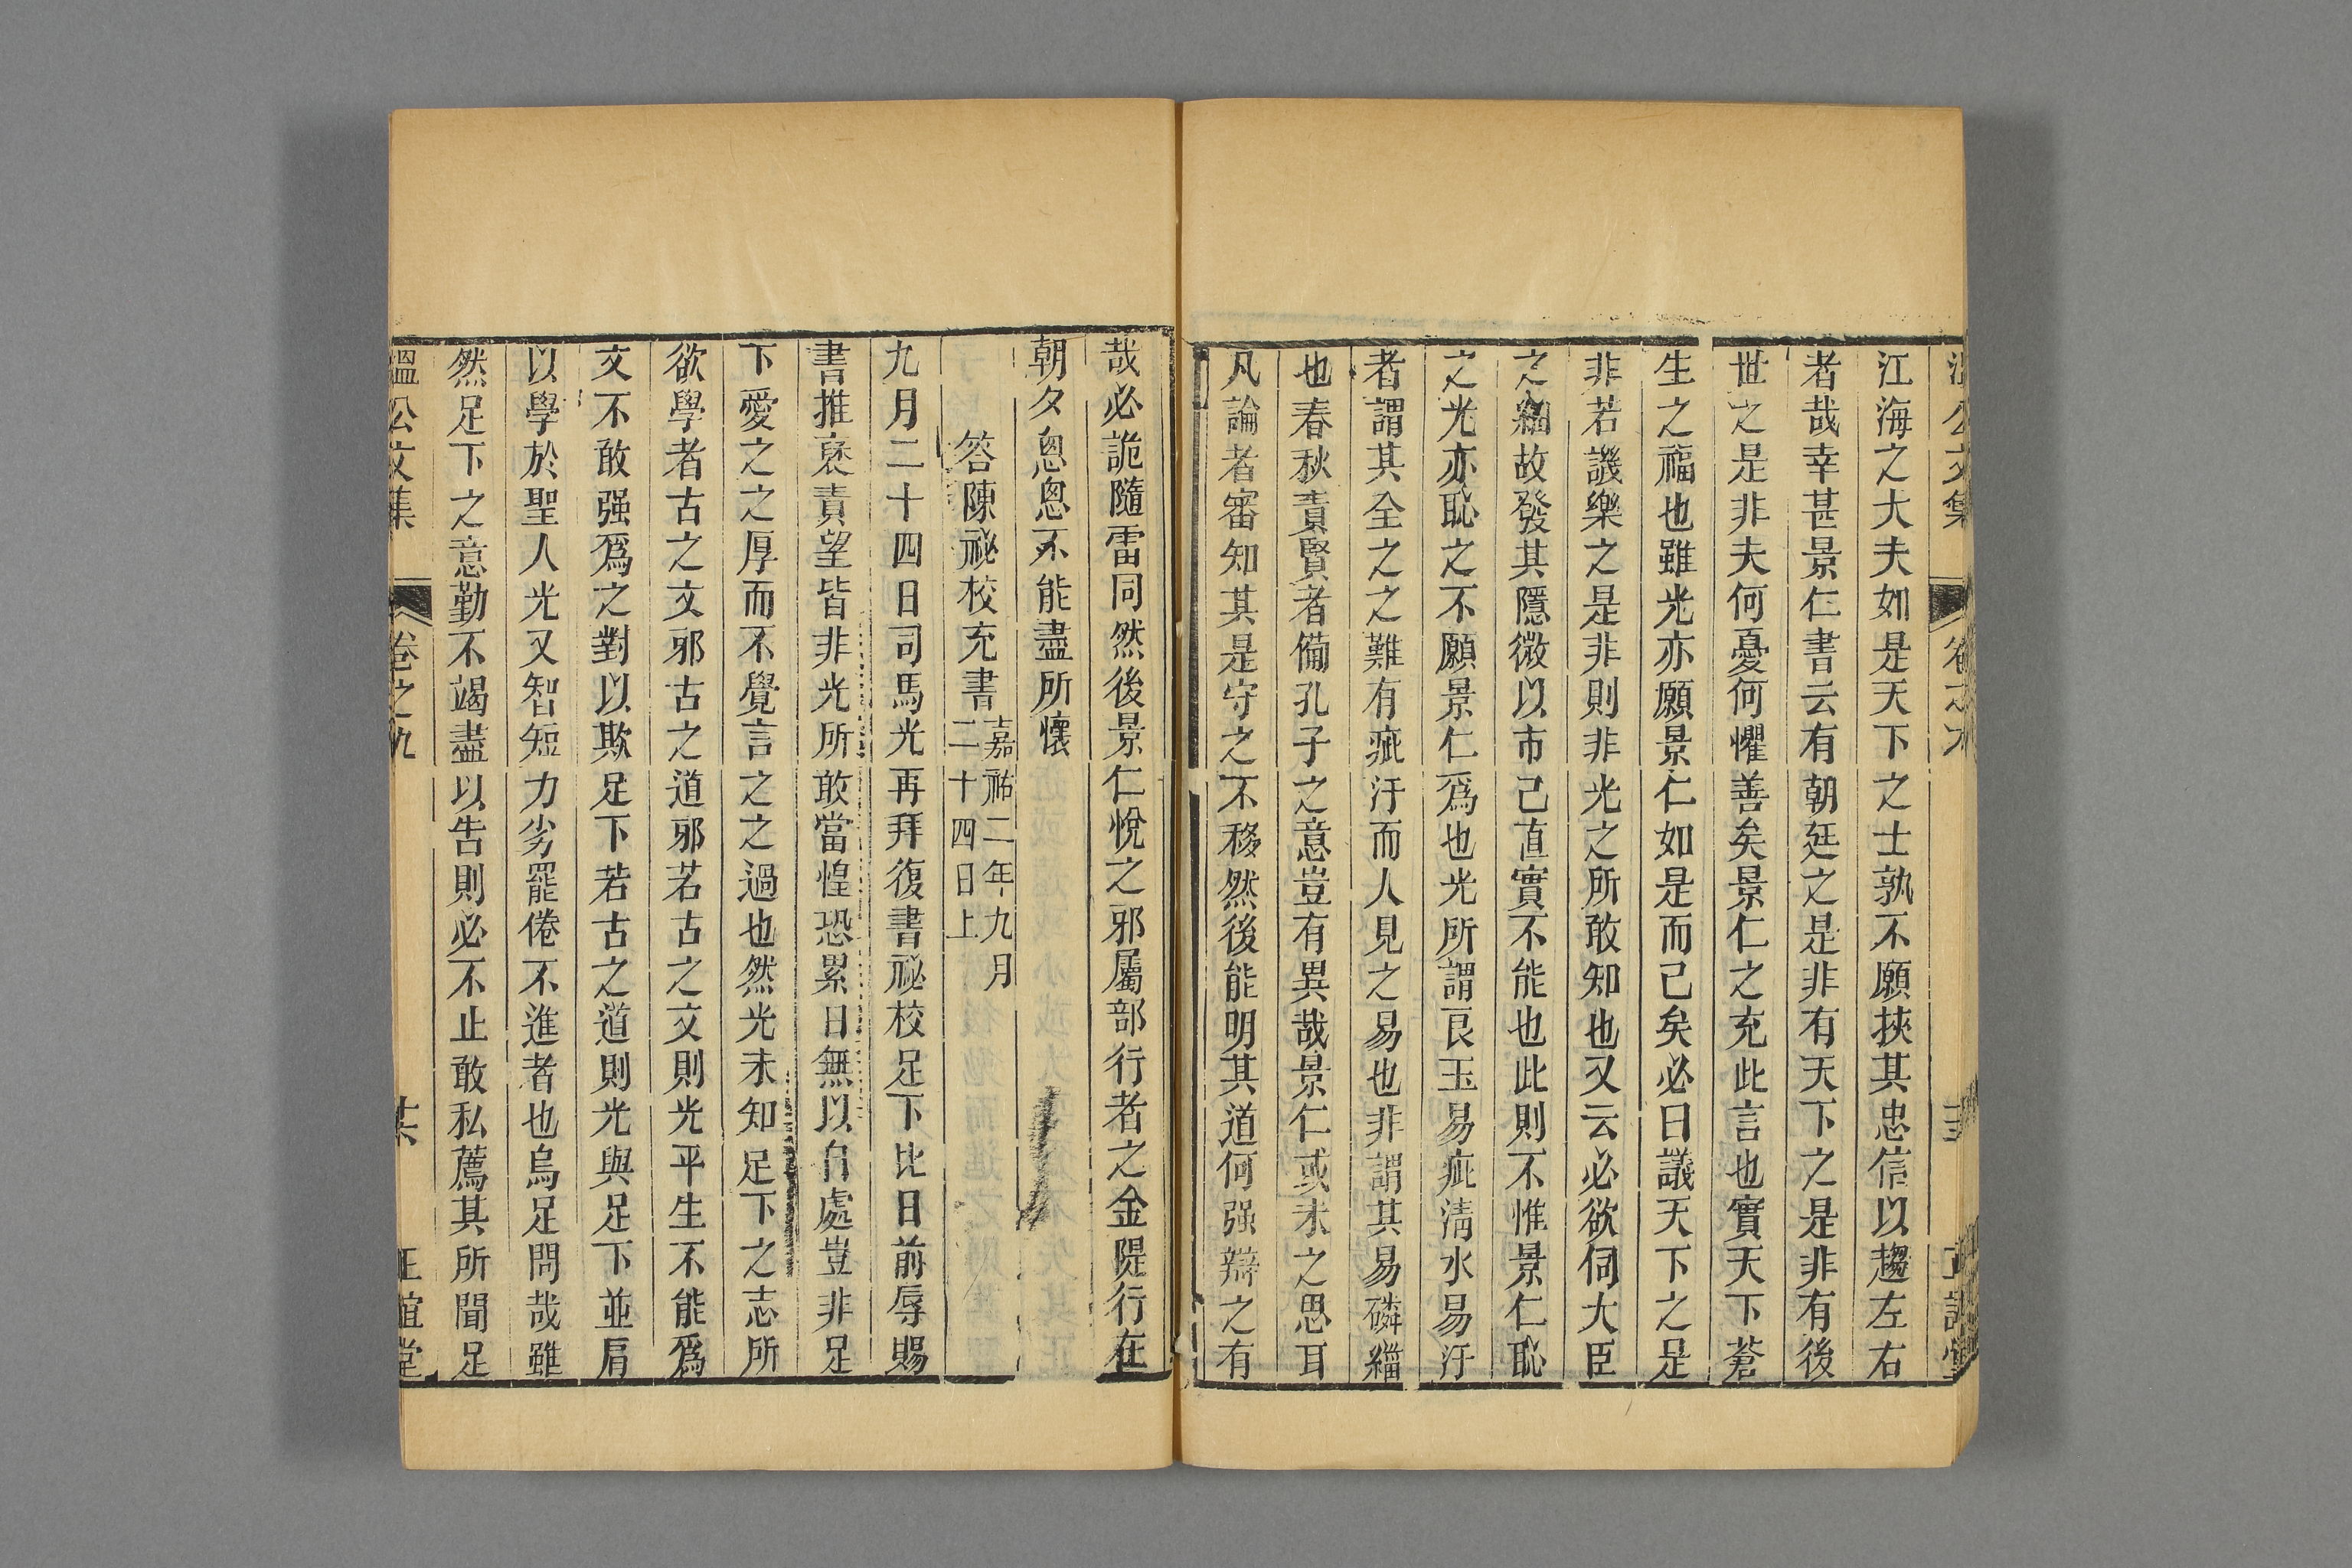 江海之大夫如是天下之士孰不願挾其忠信以趨左右
者哉幸甚景仁書云有朝廷之是非有天下之是非有後
世之是非夫何憂何懼善矣景仁之充此言也實天下蒼
生之福也雖光亦願景仁如是而已矣必曰議天下之是
非若譏樂之是非則非光之所敢知也又云必欲伺大臣
之細故發其隱微以市己直實不能也此則不惟景仁恥
之光亦恥之不願景仁爲也光所謂良玉易疵淸水易汙
者謂其全之之難有疵汙而人見之易也非謂其易磷緇
也春秋責賢者備孔子之意豈有異哉景仁或未之思耳
凡論者審知其是守之不移然後能明其道何强辯之有
哉必詭隨雷同然後景仁悅之邪屬部行者之金隄行在
朝夕悤悤不能盡所懷
答陳祕校充書嘉祐二年九月二十四日上
九月二十四日司馬光再拜復書祕校足下比日前辱賜
書推襃責望皆非光所敢當惶恐累日無以自處豈非足
下愛之之厚而不覺言之之過也然光未知足下之志所
欲學者古之文邪古之道邪若古之文則光平生不能爲
文不敢强爲之對以欺足下若古之道則光與足下並肩
以學於聖人光又智短力劣罷倦不進者也烏足問哉雖
然足下之意勤不竭盡以告則必不止敢私薦其所聞足
溫公文集 卷之九 正誼堂